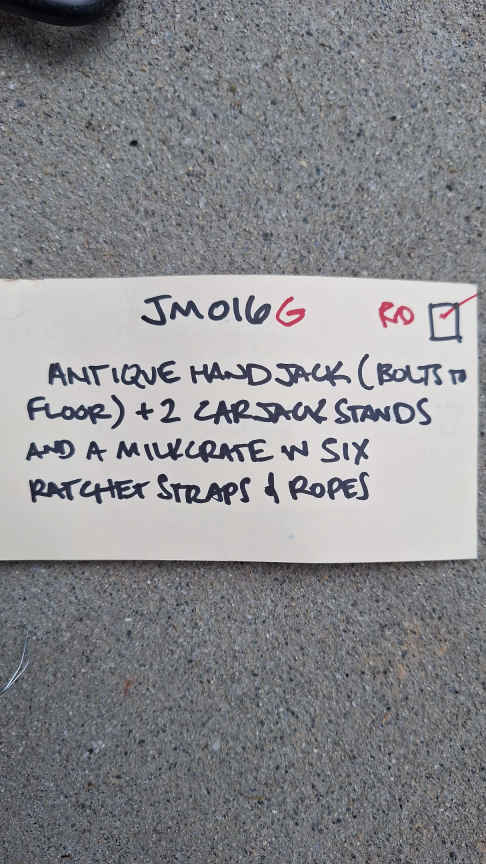 JM016G RD
ANTIQUE HAND JACK (BOLTS TO
FLOOR) + 2 CARJACK STANDS
AND A MILKCRATE W SIX
RATCHET STRAPS & ROPES